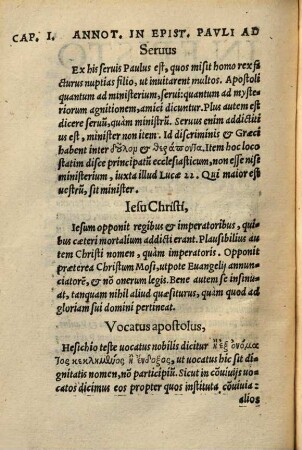 CAP. I. ANNOT. IN EPIST. PAVLI AD
Seruus
Ex his seruis Paulus est, quos misit homo rex fa
cturus nuptias filio, ut inuitarent multos. Apostoli
quantum ad ministerium, serui: quantum ad myste
riorum agnitionem, amici dicuntur. Plus autem est
dicere seruũ, quàm ministrũ. Seruus enim addictiti
us est, minister non item. Id discriminis & Græci
habent inter
Item hoc loco
statim disce principatũ ecclesiasticum, non esse nisi
ministerium, iuxta illud Lucæ 22. Qui maior est
uestrũ, sit minister.
Iesu Christi,
Iesum opponit regibus & imperatoribus, qui=
bus cæteri mortalium addicti erant. Plausibilius au
tem Christi nomen, quàm imperatoris. Opponit
præterea Christum Mosi, utpote Euangelij annun=
ciatorẽ, & nõ onerum legis. Bene autem se insinu=
at, tanquam nihil aliud quæsiturus, quàm quod ad
gloriam sui domini pertineat.
Vocatus apostolus,
Hesichio teste uocatus nobilis dicitur
ut uocatus hic sit di
gnitatis nomen, nõ participiũ. Sicut in cõuiuijs uo=
catos dicimus eos propter quos instituta cõuiuia
alios